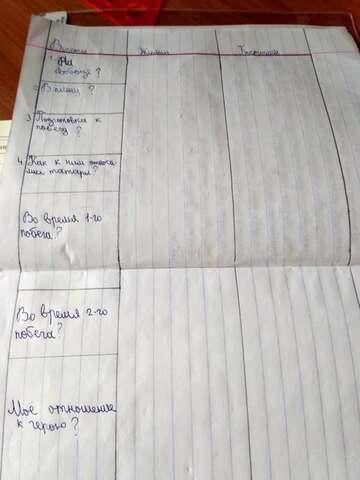 Вопросы Жилин Костылин
1. На
?
2 В плену ?
3 Подготовка к
побегу ?
4. Как к ним относи-
лись татары?
Во время 1-го
побега?
Во время 2-го
побега?
Моё отношение
к герою ?